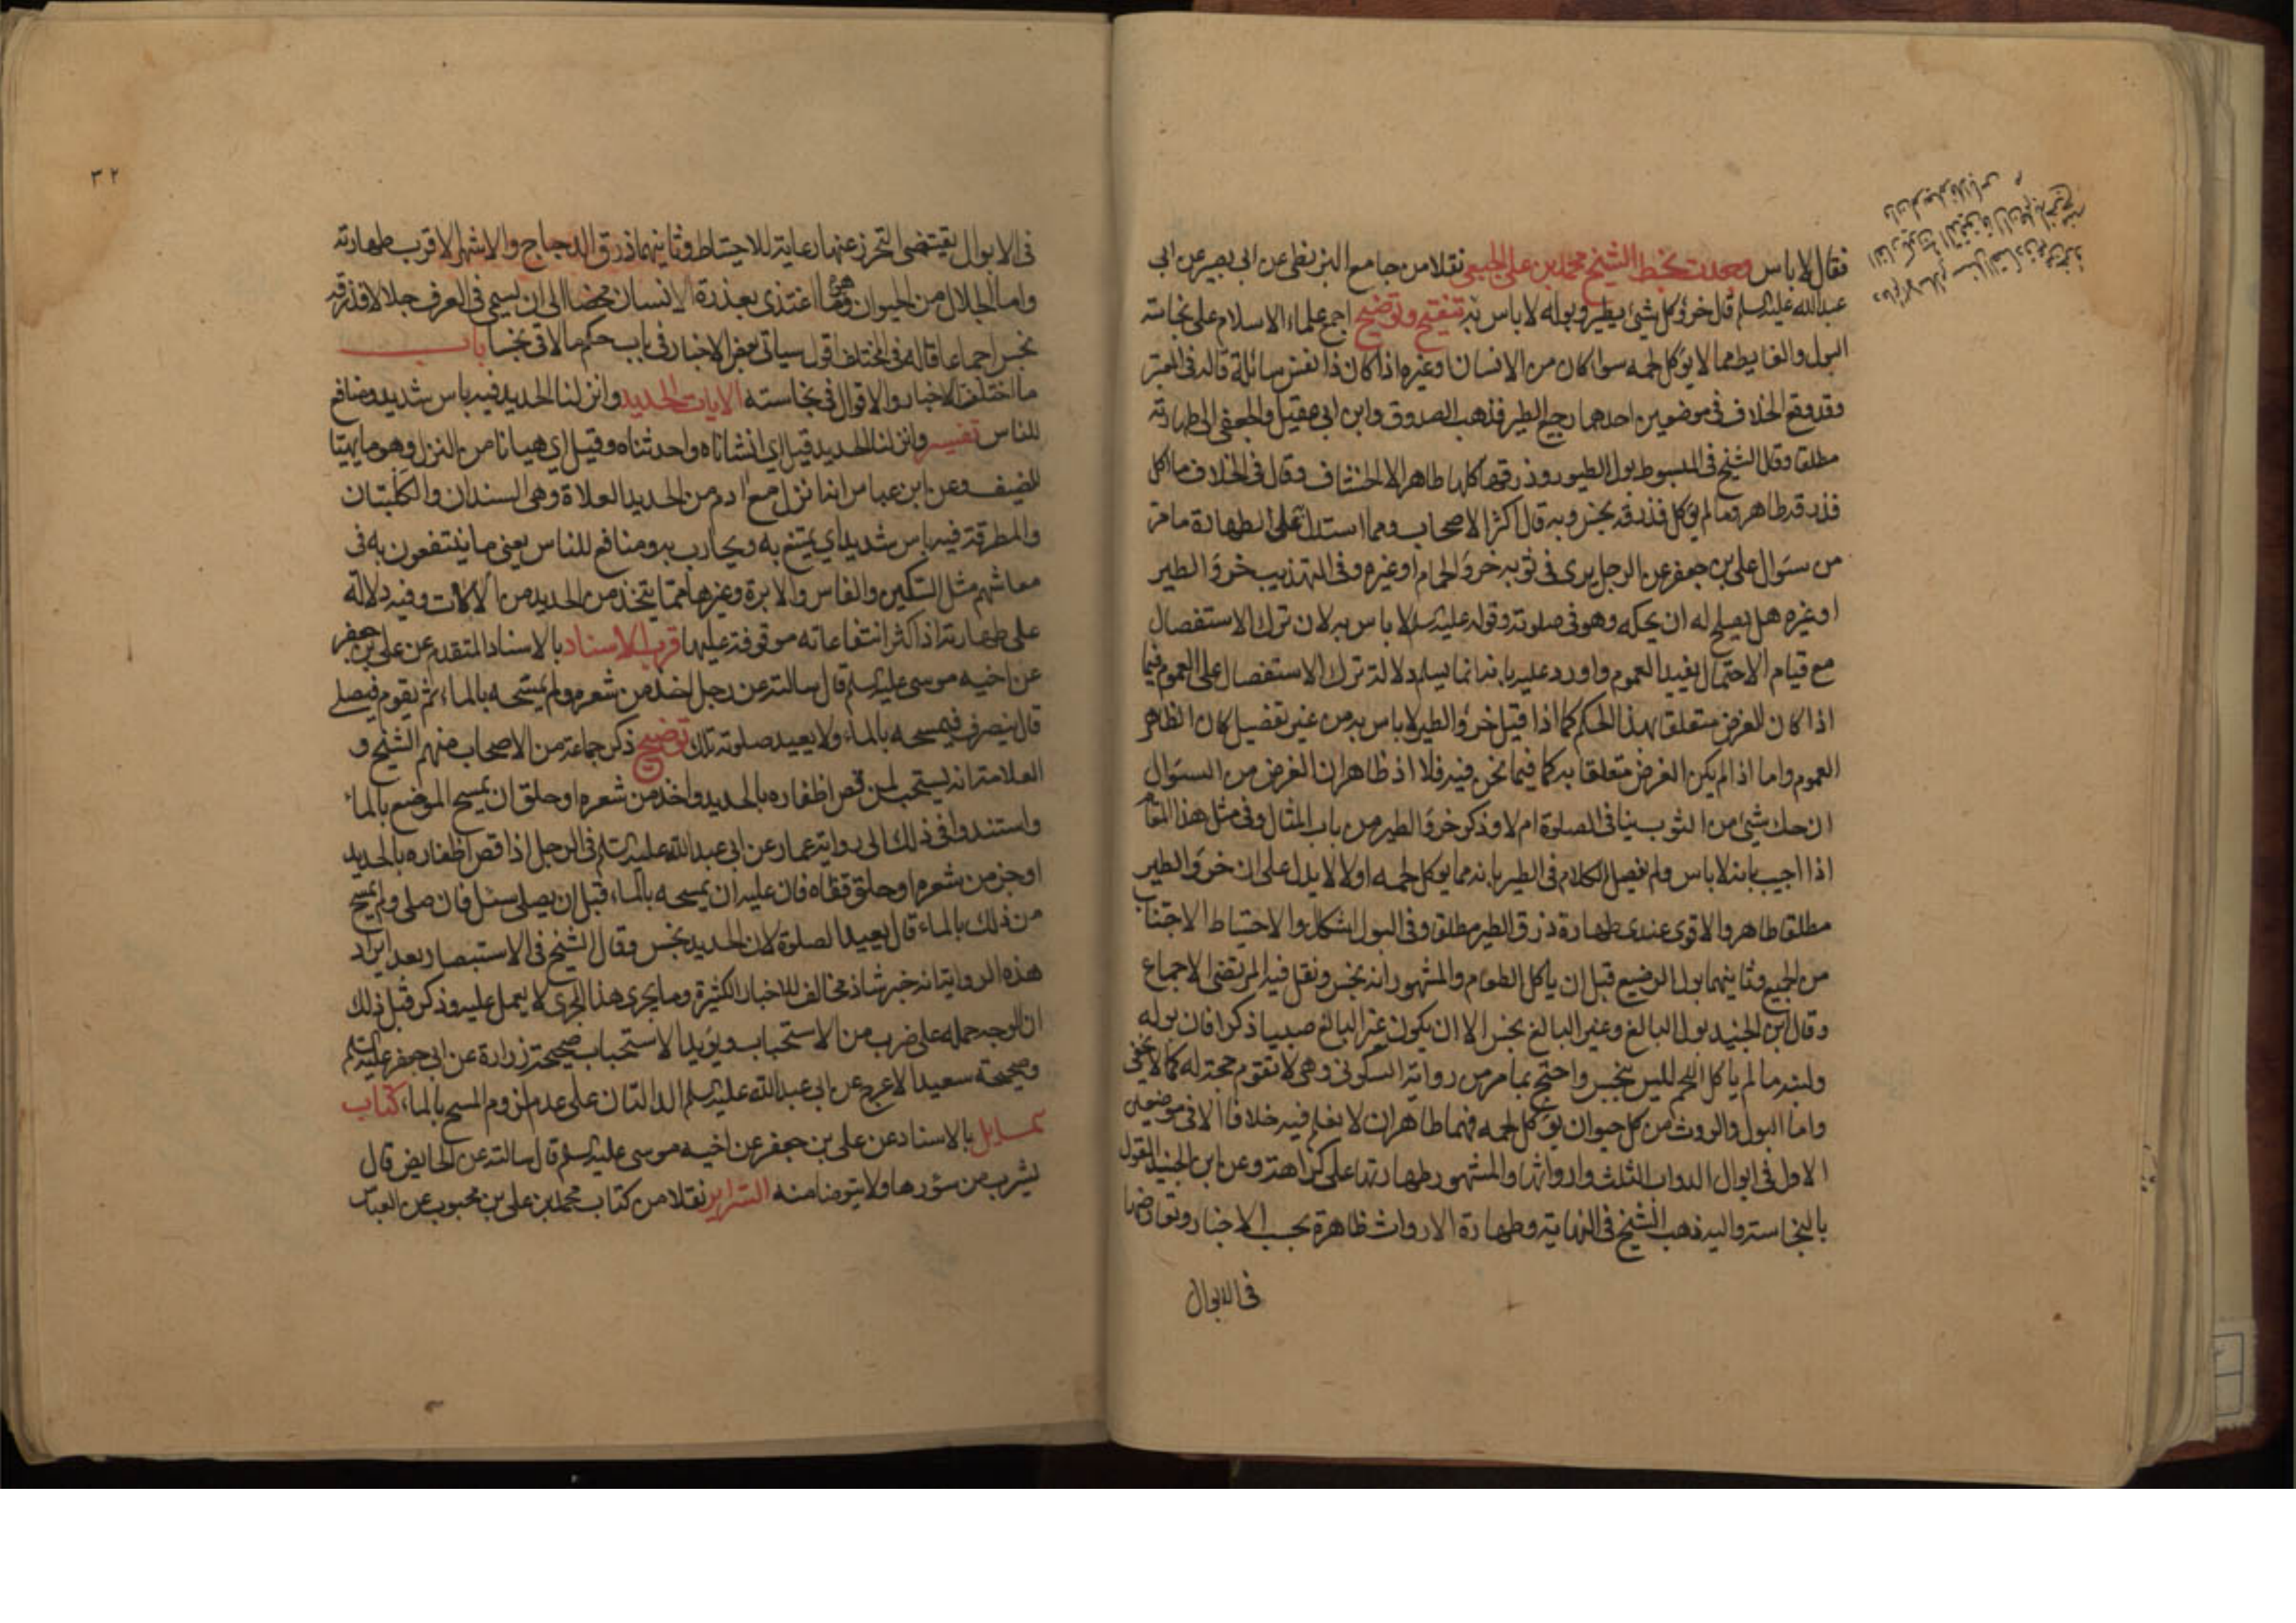 فقال لا باس وجدت بخط الشيخ محمد بن علي الجبعي نقلا من جامع البزنطي عن ابي بصير عن ابي
عبد الله عليه السلم قال خرؤ كل شيء يطير وبوله لا باس به تنقيح وتوضيح اجمع علماء الاسلام على نجاسة
البول والغايط مما لا يؤكل لحمه سوا كان من الانسان او غيره اذا كان ذا نفس سائلة قاله في المعتبر
وقد وقع الخلاف في موضعين احدهما رجيع الطير فذهب الصدوق وابن ابي عقيل والجعفي الى طهارته
مطلقا وقال الشيخ في المبسوط بول الطيور وذرقها كلها طاهر الا الخشاف وقال في الخلاف ما اكل
فذرقه طاهر وما لم يؤكل فذرقه نجس وبه قال اكثر الاصحاب ومما استدل به على الطهارة ما مر
من سؤال علي بن جعفر عن الرجل يرى في ثوبه خرؤ الحمام او غيره وفي التهذيب خرؤ الطير
او غيره هل يصلح له ان يحكه وهو في صلوته وقوله عليه السلم لا باس به لان ترك الاستفصال
مع قيام الاحتمال يفيد العموم واورد عليه بانه انما يسلم دلالة ترك الاستفصال على العموم فيما
اذا كان الغرض متعلقا بهذا الحكم كما اذا قيل خرؤ الطير لا باس به من غير تفصيل كان الظاهر
العموم واما اذا لم يكن الغرض متعلقا به كما فيما نحن فيه فلا اذ ظاهر ان الغرض من السؤال
ان حك شيء من الثوب ينافي الصلوة ام لا وذكر خرؤ الطير من باب المثال وفي مثل هذا المقام
اذا اجيب بانه لا باس ولم يفصل الكلام في الطير بانه مما يؤكل لحمه او لا لا يدل على ان خرؤ الطير
مطلقا طاهر والاقوى عندي طهارة ذرق الطير مطلقا وفي البول اشكال والاحتياط الاجتناب
من الجميع وثانيهما بول الرضيع قبل ان ياكل الطعام والمشهور انه نجس ونقل فيه المرتضى الاجماع
وقال ابن الجنيد بول البالغ وغير البالغ نجس الا ان يكون غير البالغ صبيا ذكرا فان بوله
ولبنه ما لم ياكل اللحم ليس بنجس واحتج بما مر من رواية السكوني وهي لا تقوم حجة له كما لا يخفى
واما البول والروث من كل حيوان يؤكل لحمه فهما طاهران لا نعلم فيه خلافا الا في موضعين
الاول في ابوال الدواب الثلث وارواثها والمشهور طهارتها على كراهة وعن ابن الجنيد القول
بالنجاسة واليه ذهب الشيخ في النهاية وطهارة الارواث ظاهرة بحسب الاخبار وتعارضها
في الابوال
٣٢
في الابوال يقتضي التحرز عنها رعاية للاحتياط وثانيهما ذرق الدجاج والاشهر الاقرب طهارته
واما الجلال من الحيوان وهو ما اغتذى بعذرة الانسان محضا الى ان يسمى في العرف جلالا فذرقه
نجس اجماعا قاله في المختلف قول سياتي بعض الاخبار في باب حكم ما لاقى نجسا باب
ما اختلف الاخبار والاقوال في نجاسته الايات الحديد وانزلنا الحديد فيه باس شديد ومنافع
للناس تفسير وانزلنا الحديد قيل اي انشاناه واحدثناه وقيل اي هيانا من النزل وهو ما يهيا
للضيف وعن ابن عباس انه انزل مع ادم من الحديد العلاة وهي السندان والكلبتان
والمطرقة فيه باس شديد اي يمتنع به ويحارب به ومنافع للناس يعني ما ينتفعون به في
معاشهم مثل السكين والفاس والابرة وغيرها مما يتخذ من الحديد من الالات وفيه دلالة
على طهارته اذ اكثر انتفاعاته موقوفة عليها قرب الاسناد بالاسناد المتقدم عن علي بن جعفر
عن اخيه موسى عليه السلم قال سالته عن رجل اخذ من شعره ولم يمسحه بالماء ثم يقوم فيصلي
قال ينصرف فيمسحه بالماء ولا يعيد صلوته تلك توضيح ذكر جماعة من الاصحاب منهم الشيخ و
العلامة انه يستحب لمن قص اظفاره بالحديد واخذ من شعره او حلق ان يمسح الموضع بالماء
واستندوا في ذلك الى رواية عمار عن ابي عبد الله عليه السلم في الرجل اذا قص اظفاره بالحديد
او جز من شعره او حلق قفاه فان عليه ان يمسحه بالماء قبل ان يصلي سئل فان صلى ولم يمسح
من ذلك بالماء قال يعيد الصلوة لان الحديد نجس وقال الشيخ في الاستبصار بعد ايراد
هذه الرواية انه خبر شاذ مخالف للاخبار الكثيرة وما يجري هذا المجرى لا يعمل عليه وذكر قبل ذلك
ان الوجه حمله على ضرب من الاستحباب ويؤيد الاستحباب صحيحة زرارة عن ابي جعفر عليه السلم
وصحيحة سعيد الاعرج عن ابي عبد الله عليه السلم الدالتان على عدم لزوم المسح بالماء كتاب
المسايل بالاسناد عن علي بن جعفر عن اخيه موسى عليه السلم قال سالته عن الحايض قال
يشرب من سؤرها ولا يتوضا منه السراير نقلا من كتاب محمد بن علي بن محبوب عن العباس